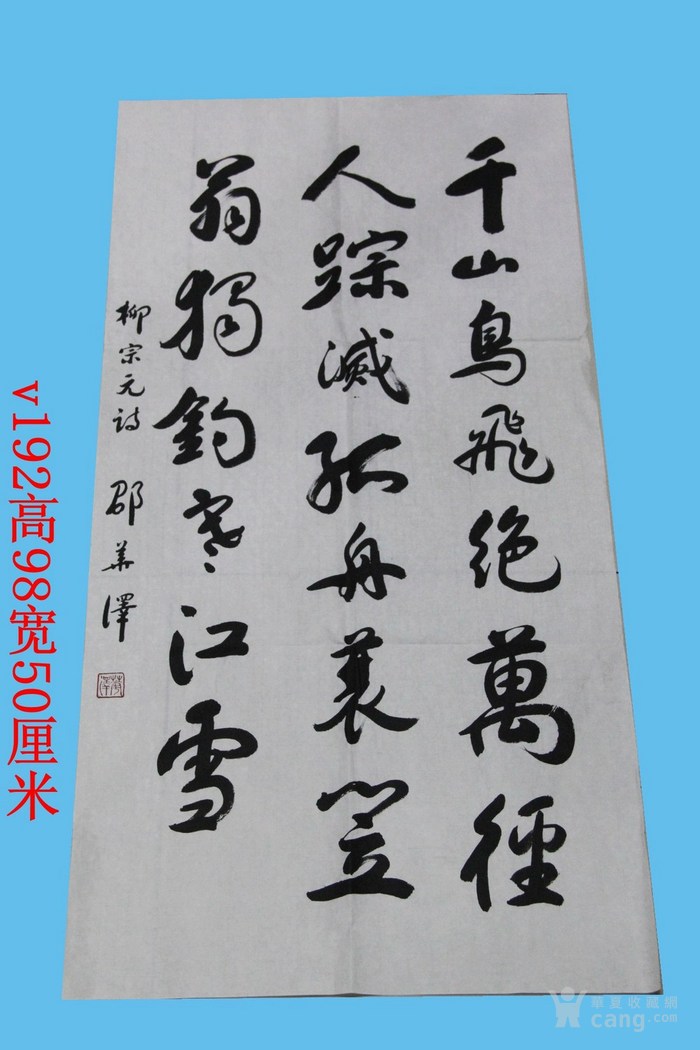 千山鳥飛绝萬徑
人踪滅孤舟蓑笠
翁獨釣寒江雪
柳宗元诗 邵華澤
v192高98宽50厘米
華夏收藏網
cang.com